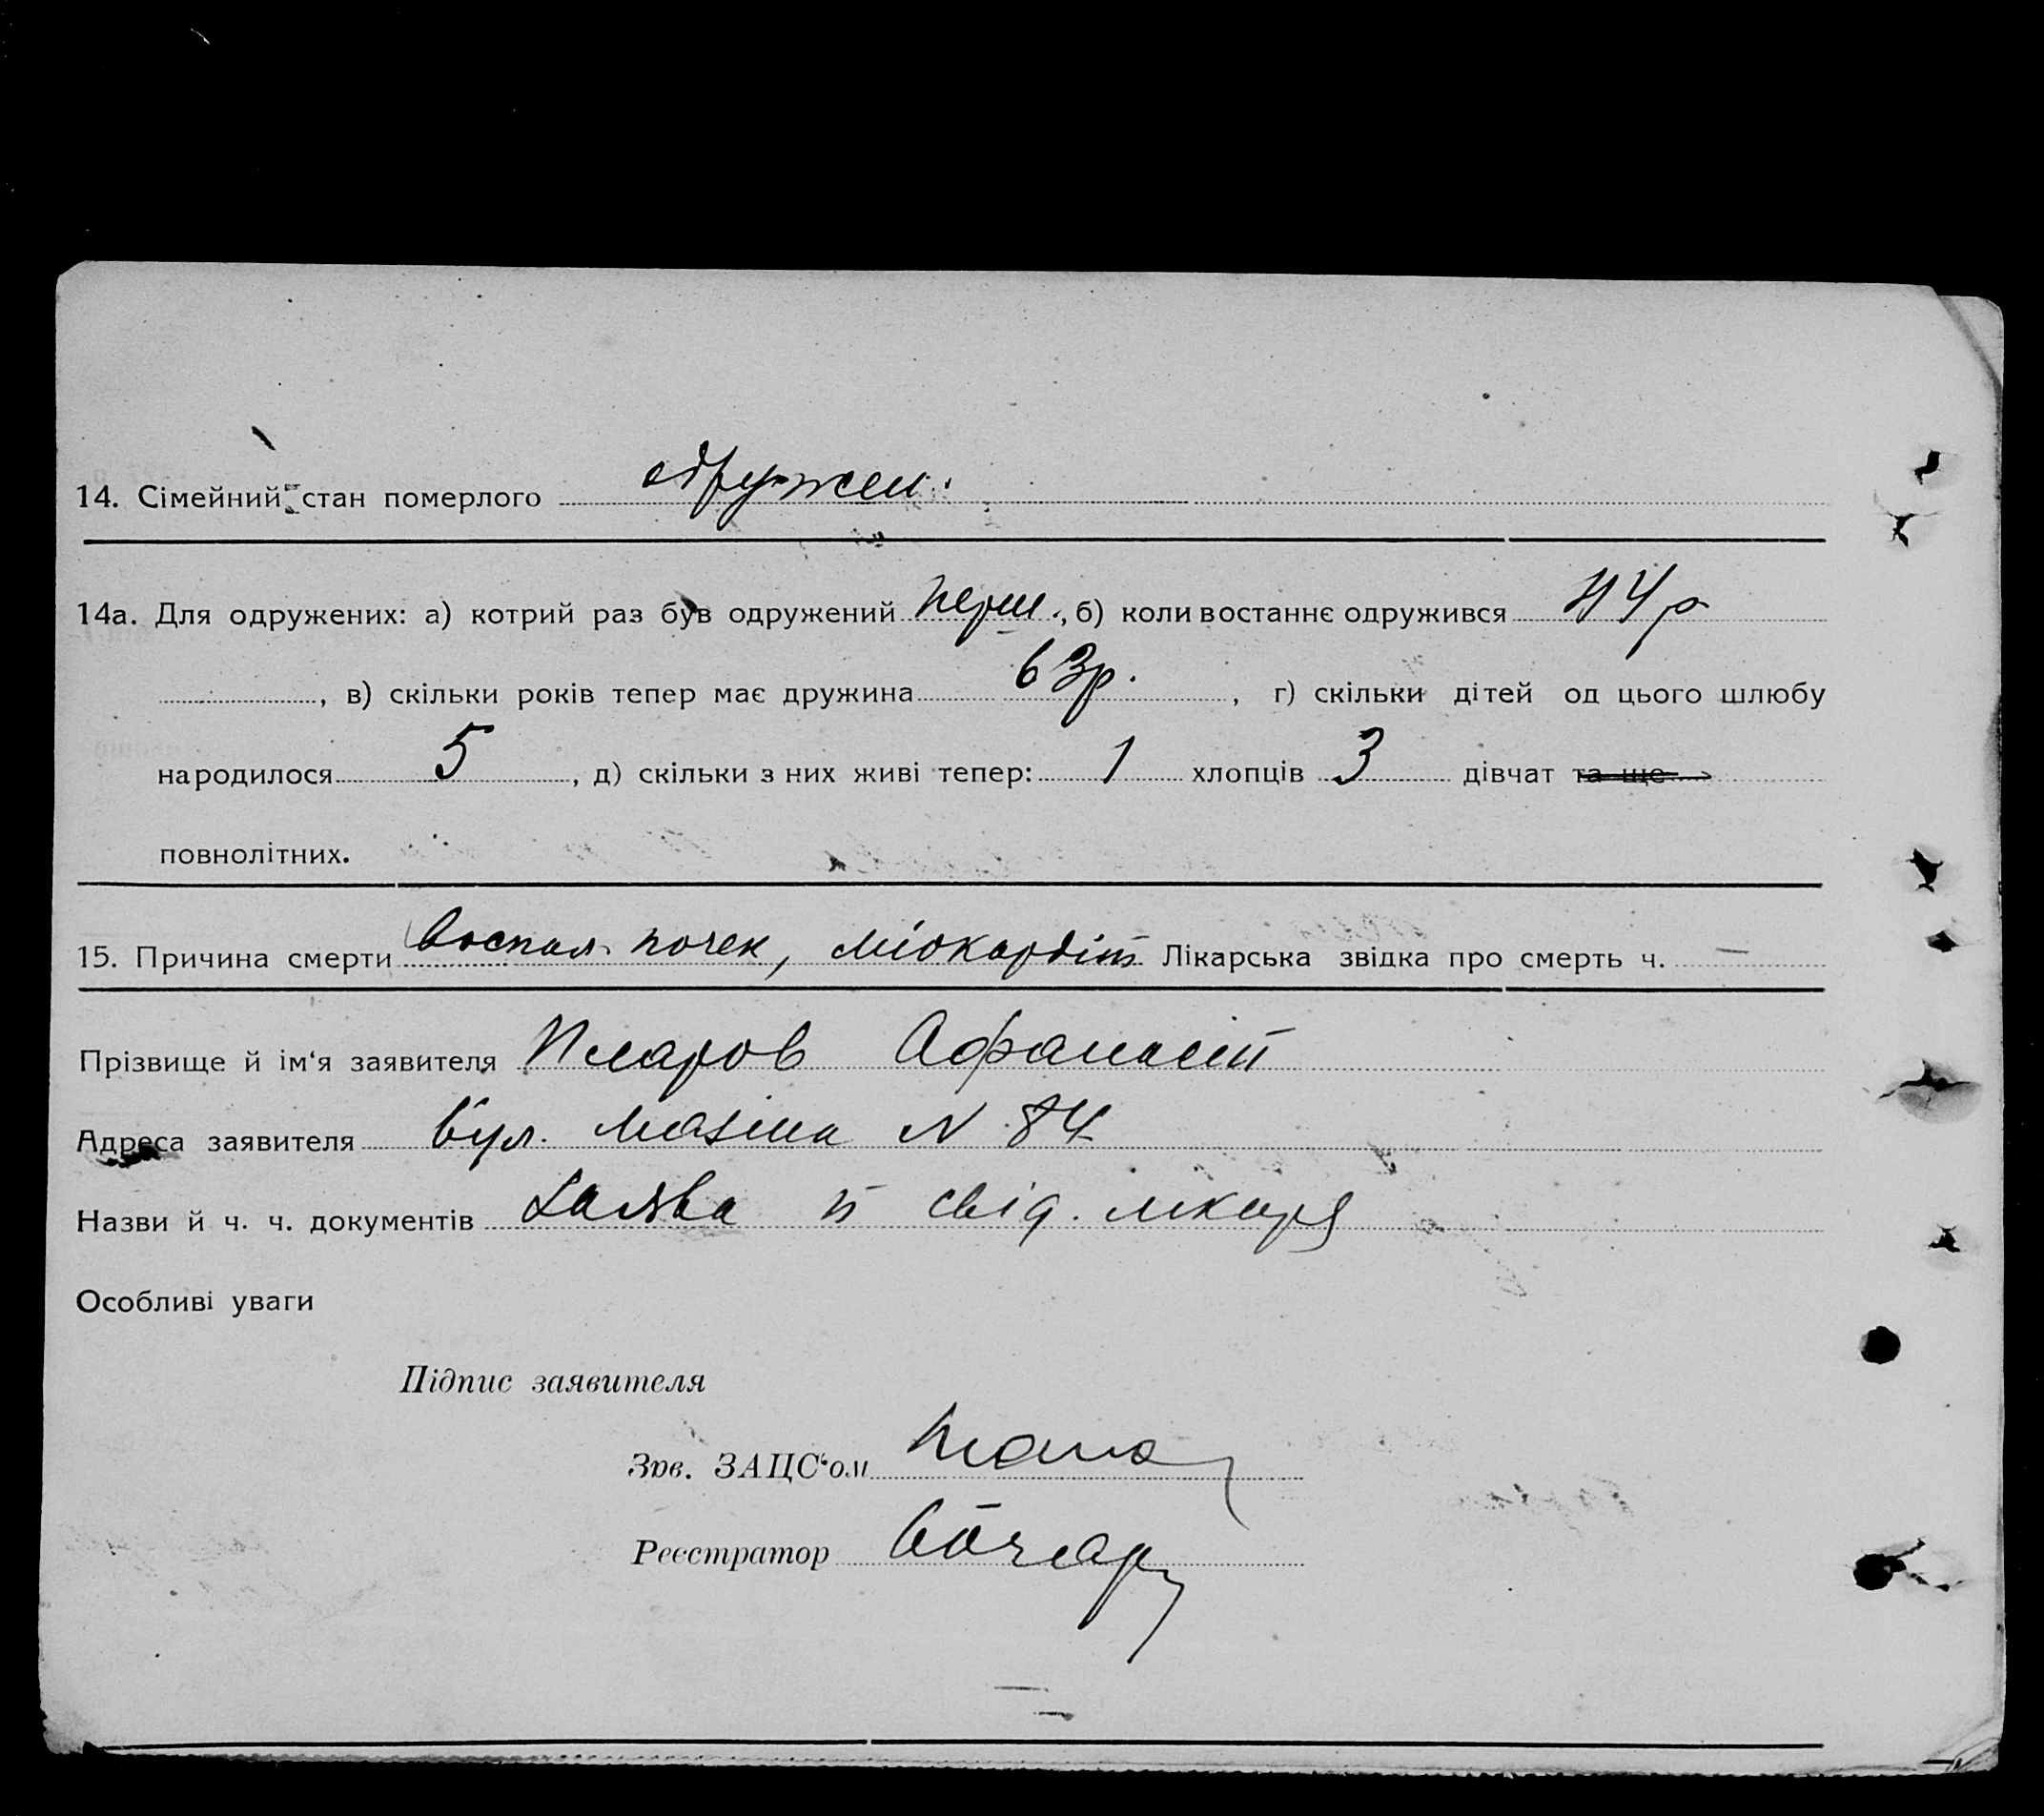 14. Сімейний стан померлого одружен.
14а. Для одружених: а) котрий раз був одружений перш., б) коли востаннє одружився 44 р
, в) скільки років тепер має дружина 63 р. , г) скільки дітей од цього шлюбу
народилося 5 , д) скільки з них живі тепер: 1 хлопців 3 дівчат та ще
повнолітних.
15. Причина смерти Воспал. почек, міокардіт Лікарська звідка про смерть ч. —
Прізвище й ім‘я заявителя Афанасій
Адреса заявителя вул. N 84
Назви й ч. ч. документів Заява й свід. лікаря
Особливі уваги
Підпис заявителя
Зав. ЗАЦС‘ом
Реєстратор